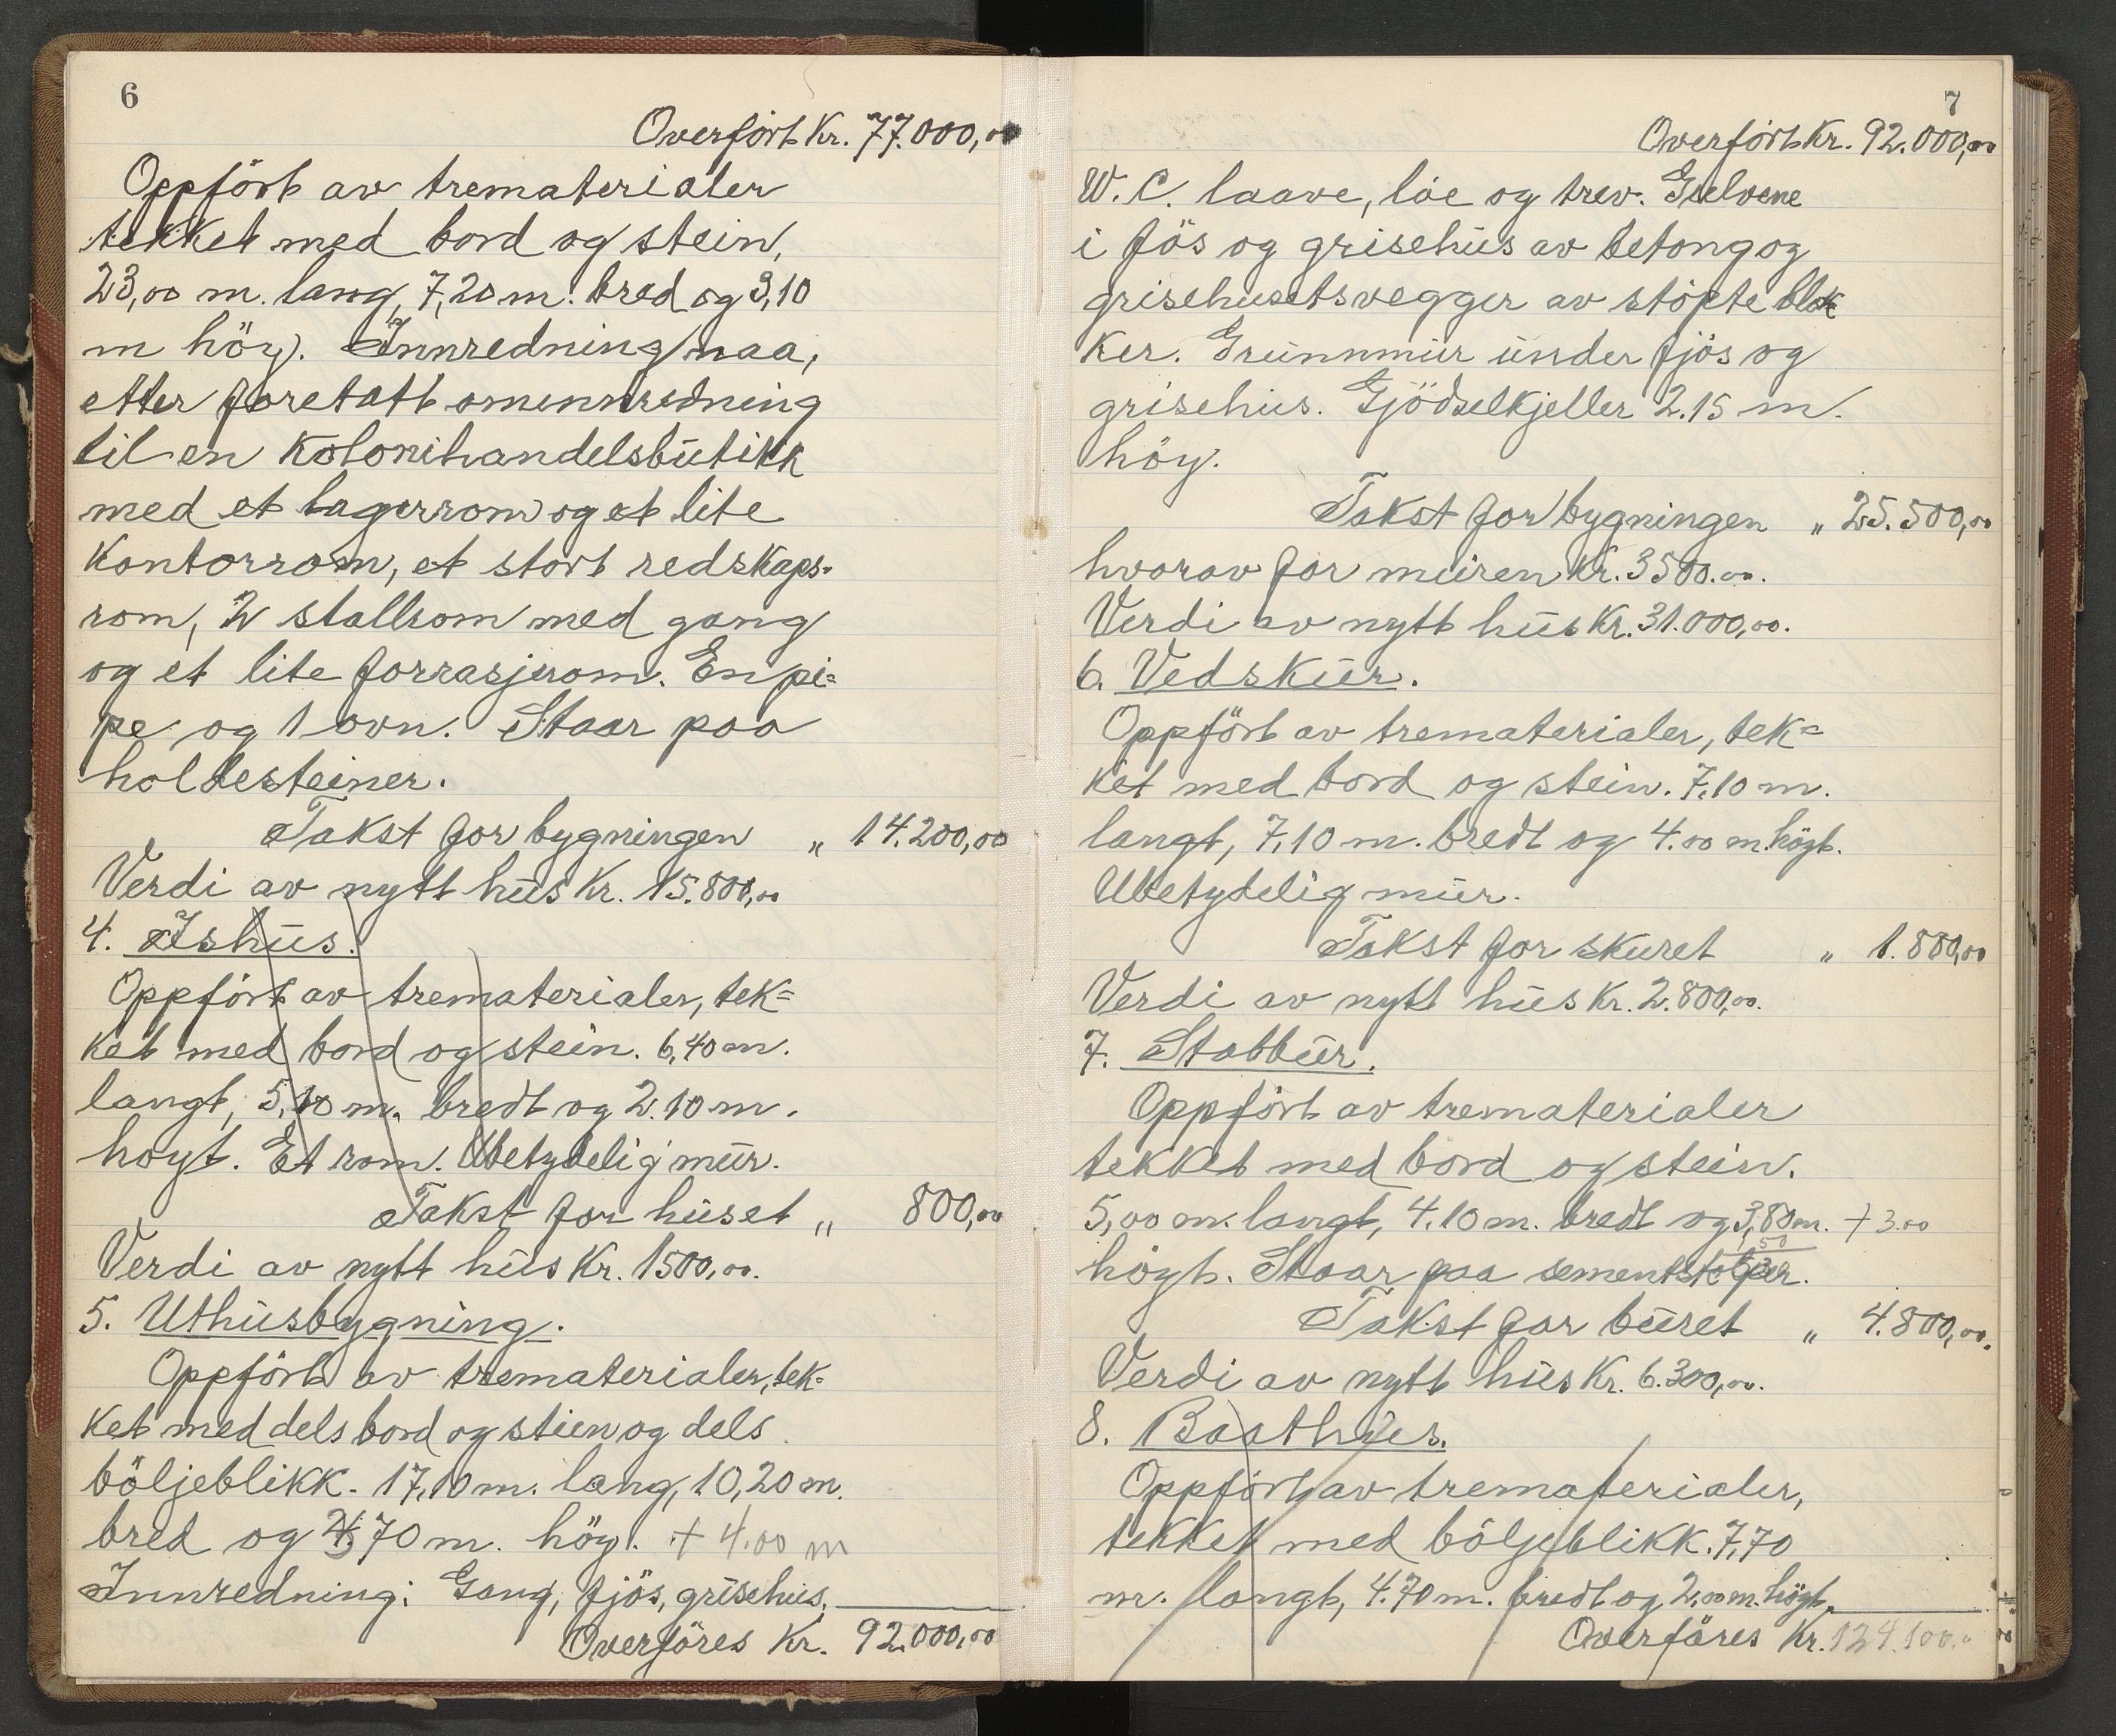 6
Overført Kr. 77.000,00
Oppført av trematerialer
tekket med bord og stein,
23,00 m. lang, 7,20 m. bred og 3,10
m höy. Innredning naa,
etter foretatt omennredning
til en kolonihandelsbutikk
med et lagerrom og et lite
kontorrom, et stort redskaps-
rom, 2 stallrom med gang
og et lite forrasjerom. En pi=
pe og 1 ovn. Staar paa
holdesteiner.
Takst for bygningen „ 14.200,00
Verdi av nytt hus Kr. 15.800,00
4. Ishus.
Oppfört av trematerialer, tek=
ket med bord og stein. 6,40 m.
langt, 5,10 m. bredt og 2.10 m.
hoyt. Et rom. Ubetydelig mur.
Takst for huset „ 800,00
Verdi av nytt hus Kr. 1500,00.
5. Uthusbygning.
Oppfört av trematerialer, tek=
ket med dels bord og stein og dels
böljeblikk. 17,10 m. lang, 10,20 m.
bred og 70 m. höy. + 4.00 m
Innredning: Gang, fjös, grisehus,
Overföres Kr. 92.000,00
7
Overfört Kr. 92.000,00
W.C. laave, löe og trev. Gulvene
i fjös og grisehus av betong og
grisehusetsvegger av stöpte blok
ker. Grunnmur under fjös og
grisehus. Gjödselkjeller 2.15 m.
höy.
Takst for bygningen „ 25.500,00
hvorav for muren Kr. 3500.00.
Verdi av nytt hus Kr. 31.000,00.
6. Vedskur.
Oppfört av trematerialer, tek=
ket med bord og stein. 7,10 m.
langt, 7,10 m. bredt og 4.00 m. höyt.
Ubetydelig mur.
Takst for skuret „ 1.800,00
Verdi av nytt hus Kr. 2.800,00.
7. Stabbur.
Oppfört av trematerialer
tekket med bord og stein.
5,00 m. langt, 4.10 m. bredt og 3,80 m. + 3.00
höyt. Staar paa sementstolper.
Takst for buret „ 4.800,00.
Verdi av nytt hus Kr. 6.300,00.
8. Baathus.
Oppfört av trematerialer,
tekket med böljeblikk. 7,70
m. langt, 4.70 m. bredt og 2,00 m. höyt.
Overföres Kr. 124.100.-